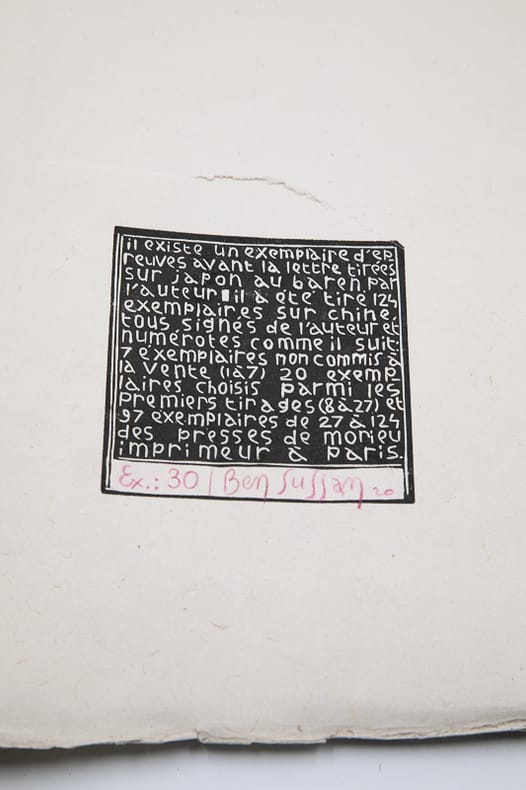 il existe un exemplaire d'ep
reuves avant la lettre tirées
sur japon au baren par
l'auteur il a été tiré 124
exemplaires sur chine.
tous signés de l'auteur et
numérotés comme il suit:
7 exemplaires non commis à
la vente (1à7) 20 exemp
laires choisis parmi les
premiers tirages (8à27) et
97 exemplaires de 27 à 124
des presses de morieu
imprimeur à paris.
Ex.: 30 / Ben Sussan 20